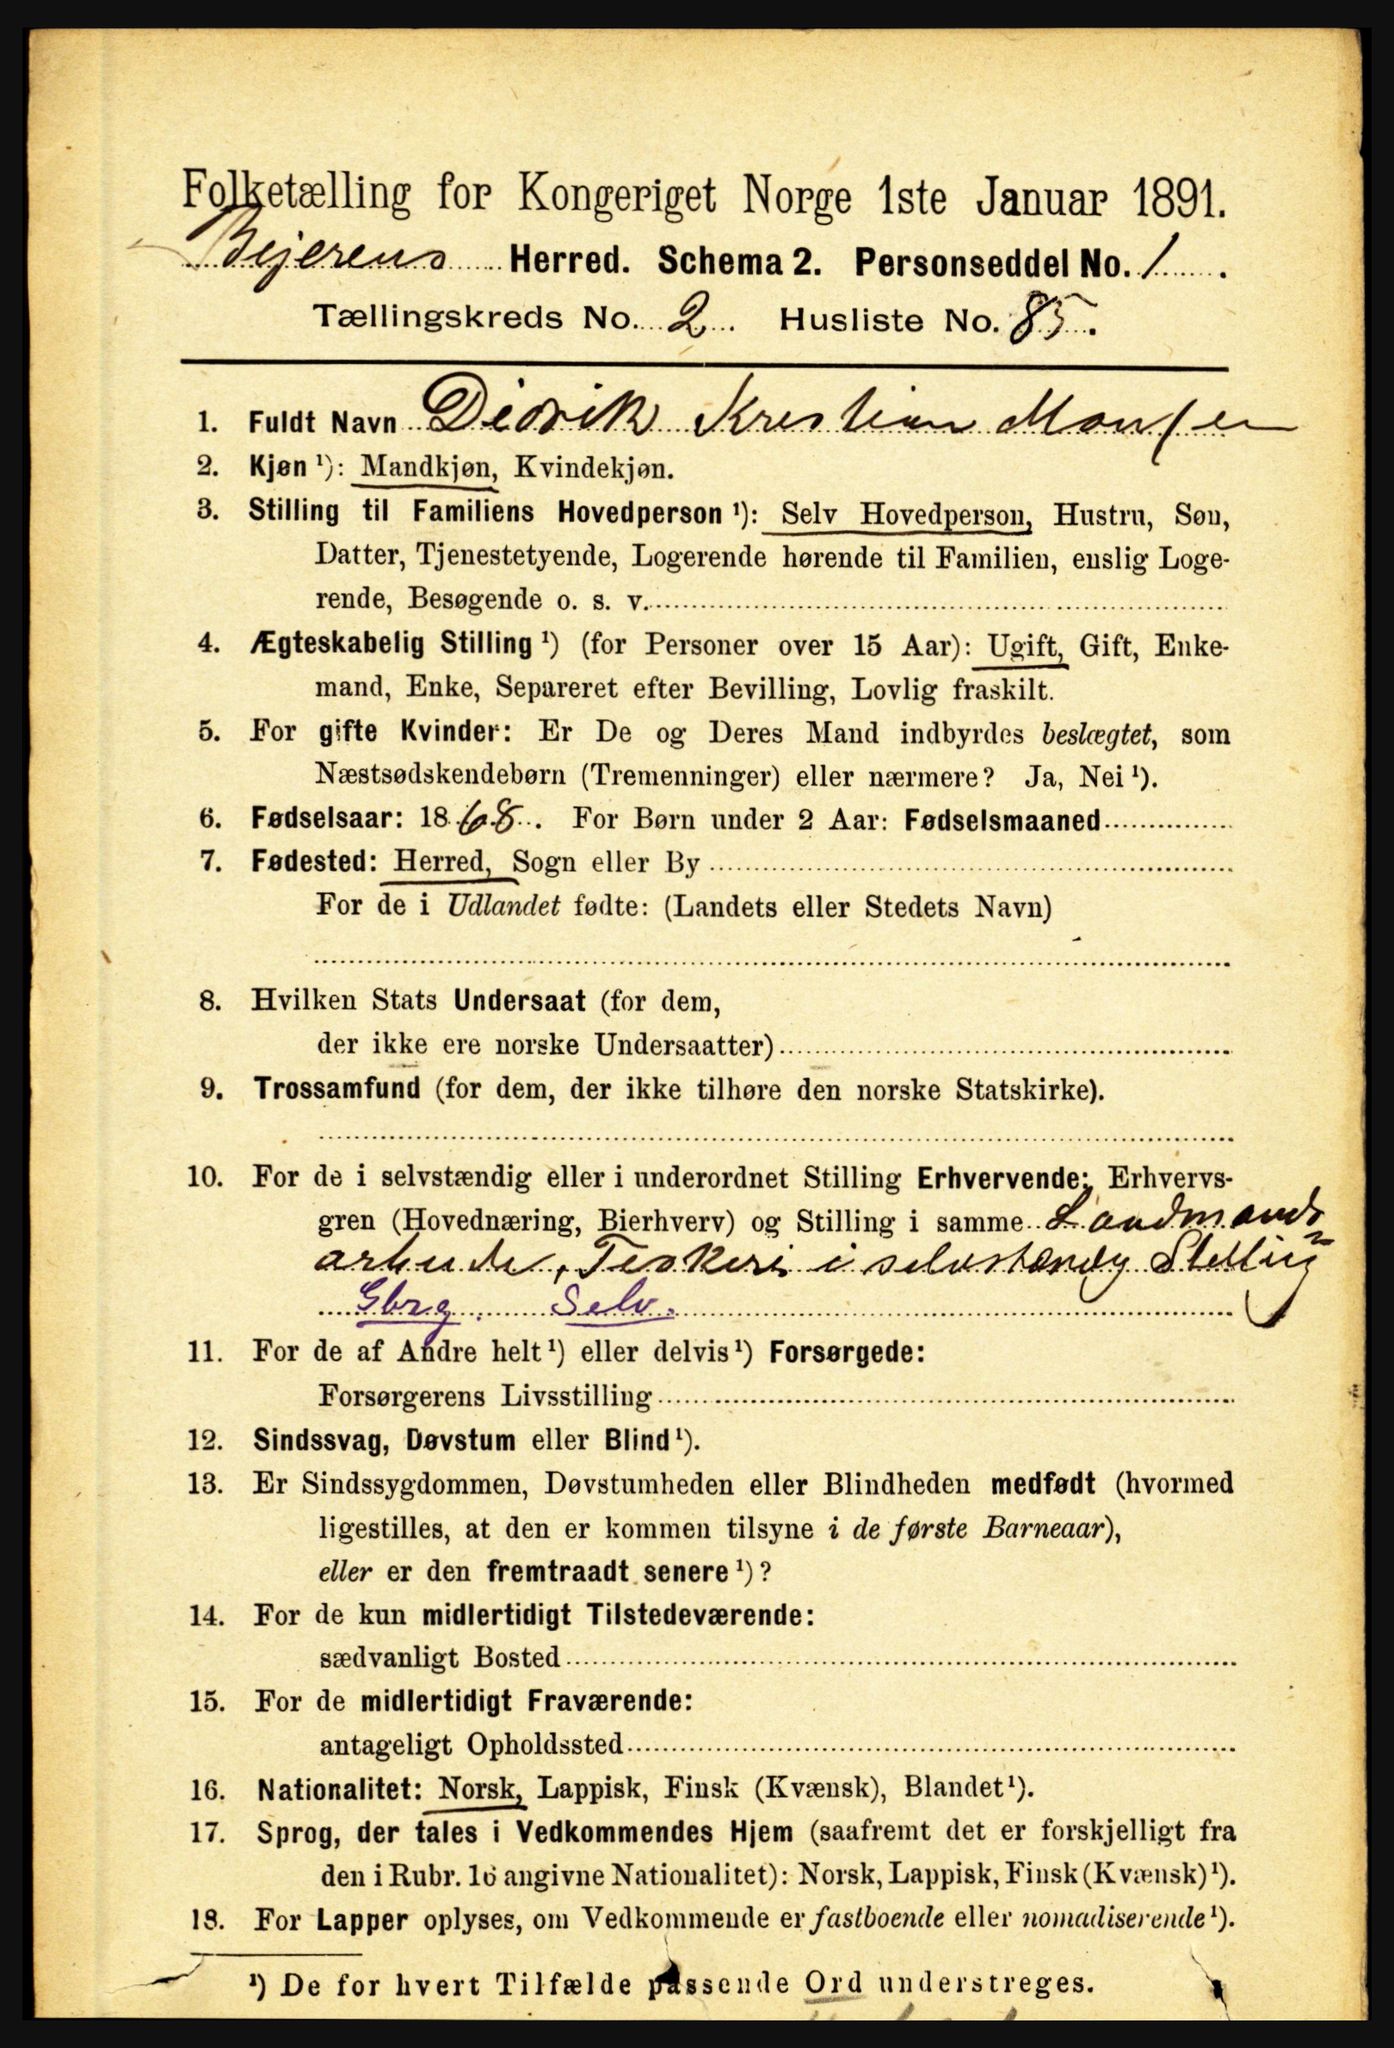 Folketælling for Kongeriget Norge 1ste Januar 1891.
Bejerens Herred. Schema 2. Personseddel No. 1
Tællingskreds No. 2. Husliste No. 85.
1. Fuldt Navn Didrik Kristian Monsen
2. Kjøn ¹): Mandkjøn, Kvindekjøn.
3. Stilling til Familiens Hovedperson ¹): Selv Hovedperson, Hustru, Søn,
Datter, Tjenestetyende, Logerende hørende til Familien, enslig Loge-
rende, Besøgende o. s. v.
4. Ægteskabelig Stilling ¹) (for Personer over 15 Aar): Ugift, Gift, Enke-
mand, Enke, Separeret efter Bevilling, Lovlig fraskilt.
5. For gifte Kvinder: Er De og Deres Mand indbyrdes beslægtet, som
Næstsødskendebørn (Tremenninger) eller nærmere? Ja, Nei ¹).
6. Fødselsaar: 1868. For Børn under 2 Aar: Fødselsmaaned
7. Fødested: Herred, Sogn eller By
For de i Udlandet fødte: (Landets eller Stedets Navn)
8. Hvilken Stats Undersaat (for dem,
der ikke ere norske Undersaatter)
9. Trossamfund (for dem, der ikke tilhøre den norske Statskirke).
10. For de i selvstændig eller i underordnet Stilling Erhvervende: Erhvervs-
gren (Hovednæring, Bierhverv) og Stilling i samme Landmands
arbeide, Fiskeri i selvstændig Stelling
Gbrg. Selv.
11. For de af Andre helt ¹) eller delvis ¹) Forsørgede:
Forsørgerens Livsstilling
12. Sindssvag, Døvstum eller Blind ¹).
13. Er Sindssygdommen, Døvstumheden eller Blindheden medfødt (hvormed
ligestilles, at den er kommen tilsyne i de første Barneaar),
eller er den fremtraadt senere ¹)?
14. For de kun midlertidigt Tilstedeværende:
sædvanligt Bosted
15. For de midlertidigt Fraværende:
antageligt Opholdssted
16. Nationalitet: Norsk, Lappisk, Finsk (Kvænsk), Blandet ¹).
17. Sprog, der tales i Vedkommendes Hjem (saafremt det er forskjelligt fra
den i Rubr. 16 angivne Nationalitet): Norsk, Lappisk, Finsk (Kvænsk) ¹).
18. For Lapper oplyses, om Vedkommende er fastboende eller nomadiserende ¹).
¹) De for hvert Tilfælde passende Ord understreges.